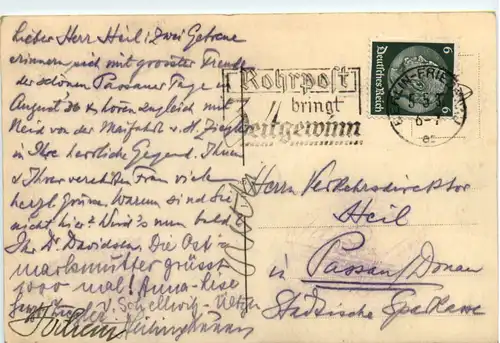 Lieber Herr Heil! Zwei Getreue
erinnern sich mit grosster Freude
der schönen Passauer Tage in
August 36 & hören zugleich mit
Neid von der Maifahrt v. H. Ziegler
in Ihre herrliche Gegend. Ihnen
u Ihrer verehrten Frau viele
herzl. Grüsse. Warum sind Sie
nicht hier? Wird's nun bald
Ihr Dr Davidsen. Die Ost
markmutter grüsst
1000 mal! Anna-Lise
v. Schellwig
Rohrpost
bringt
Zeitgewinn
Deutsches Reich
6
6
BERLIN-FRIE
6-7
Herrn Verkehrsdirektor
Heil
in Passau/Donau
Städtische Sparkasse